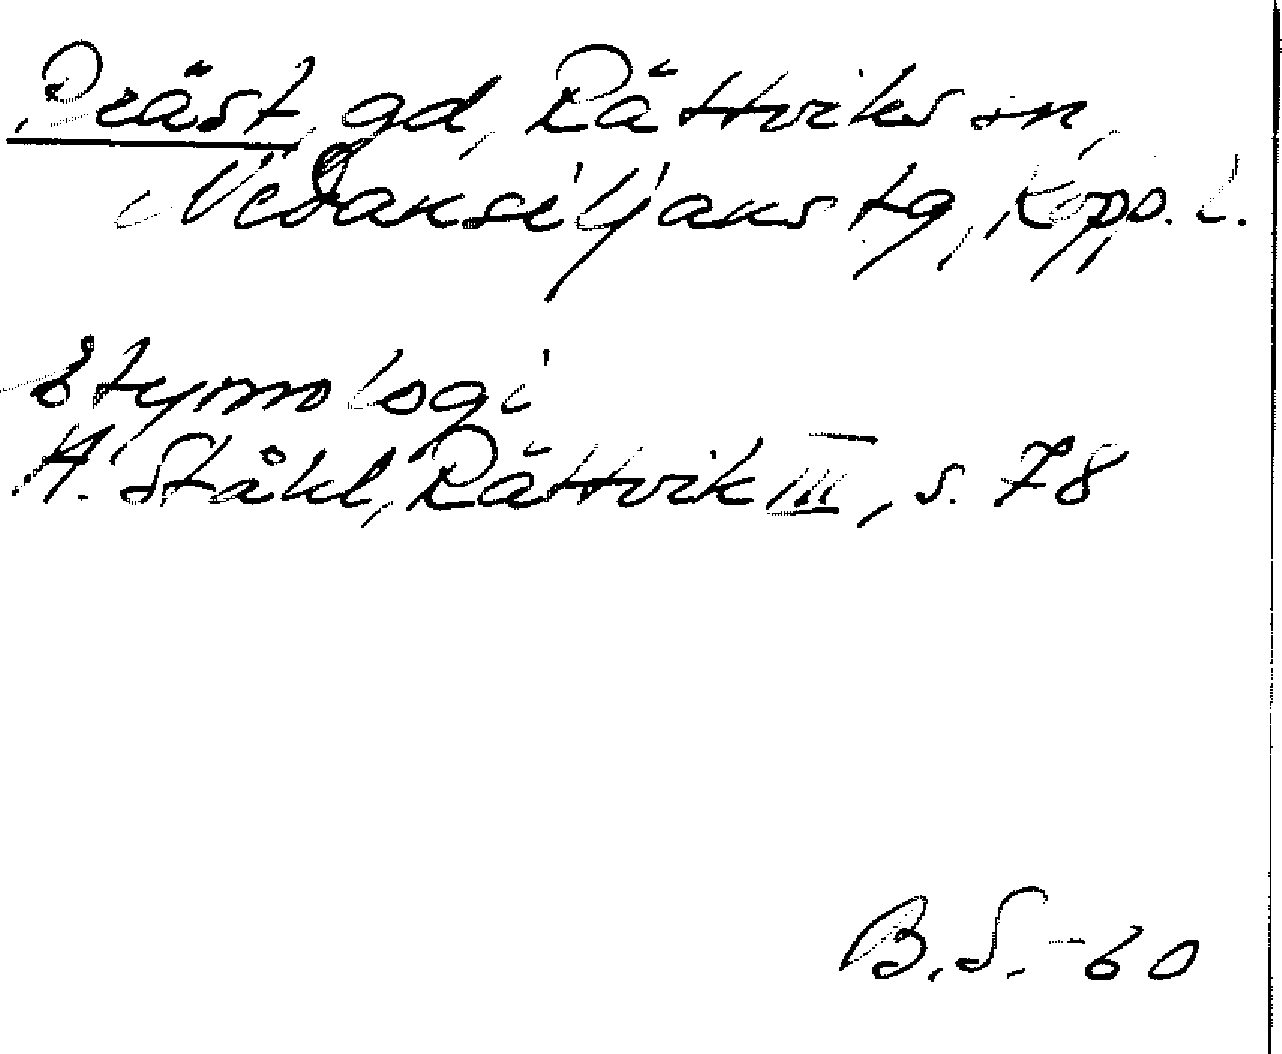 Präst, gd, Rättviks sn,
Nedansiljans tg, Kopp. l.
Etymologi
H. Ståhl, Rättvik III, s. 78
B.S. -60